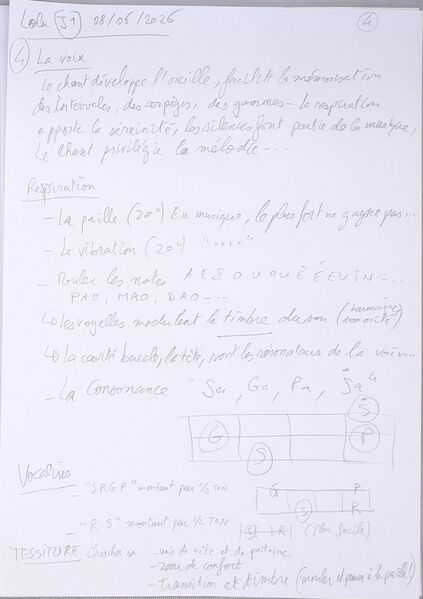 Lola J1 08/06/2026 4
4 La voix
Le chant développe l'oreille, facilite la mémorisation
des intervales, des arpèges, des gammes - la respiration
apporte la séreinité, les silences font partie de la musique,
Le chant privilégie la mélodie ...
Respiration
- La paille (20") En musique, le plus fort ne gagne pas...
- Le vibration (20") "vvvv"
- Rouler les notes A E I O U OU È É EU IN ...
PAO, MAO, DAO ...
les voyelles modulent le timbre du son (harmonique sonorité)
la cavité bucale, la tête, sont les résonateurs de la voix...
- La Consonance "Sa, Ga, Pa, Sa"
S
G P
S
Vocalises
- "S R G P" montant par 1/2 TON
G P
S R
- "R S" montant par 1/2 TON
S R (Plus facile)
TESSITURE Chercher sa - voix de tête et de poitrine
- zone de confort
- Transition et timbre (rouler et passer à la paille!)